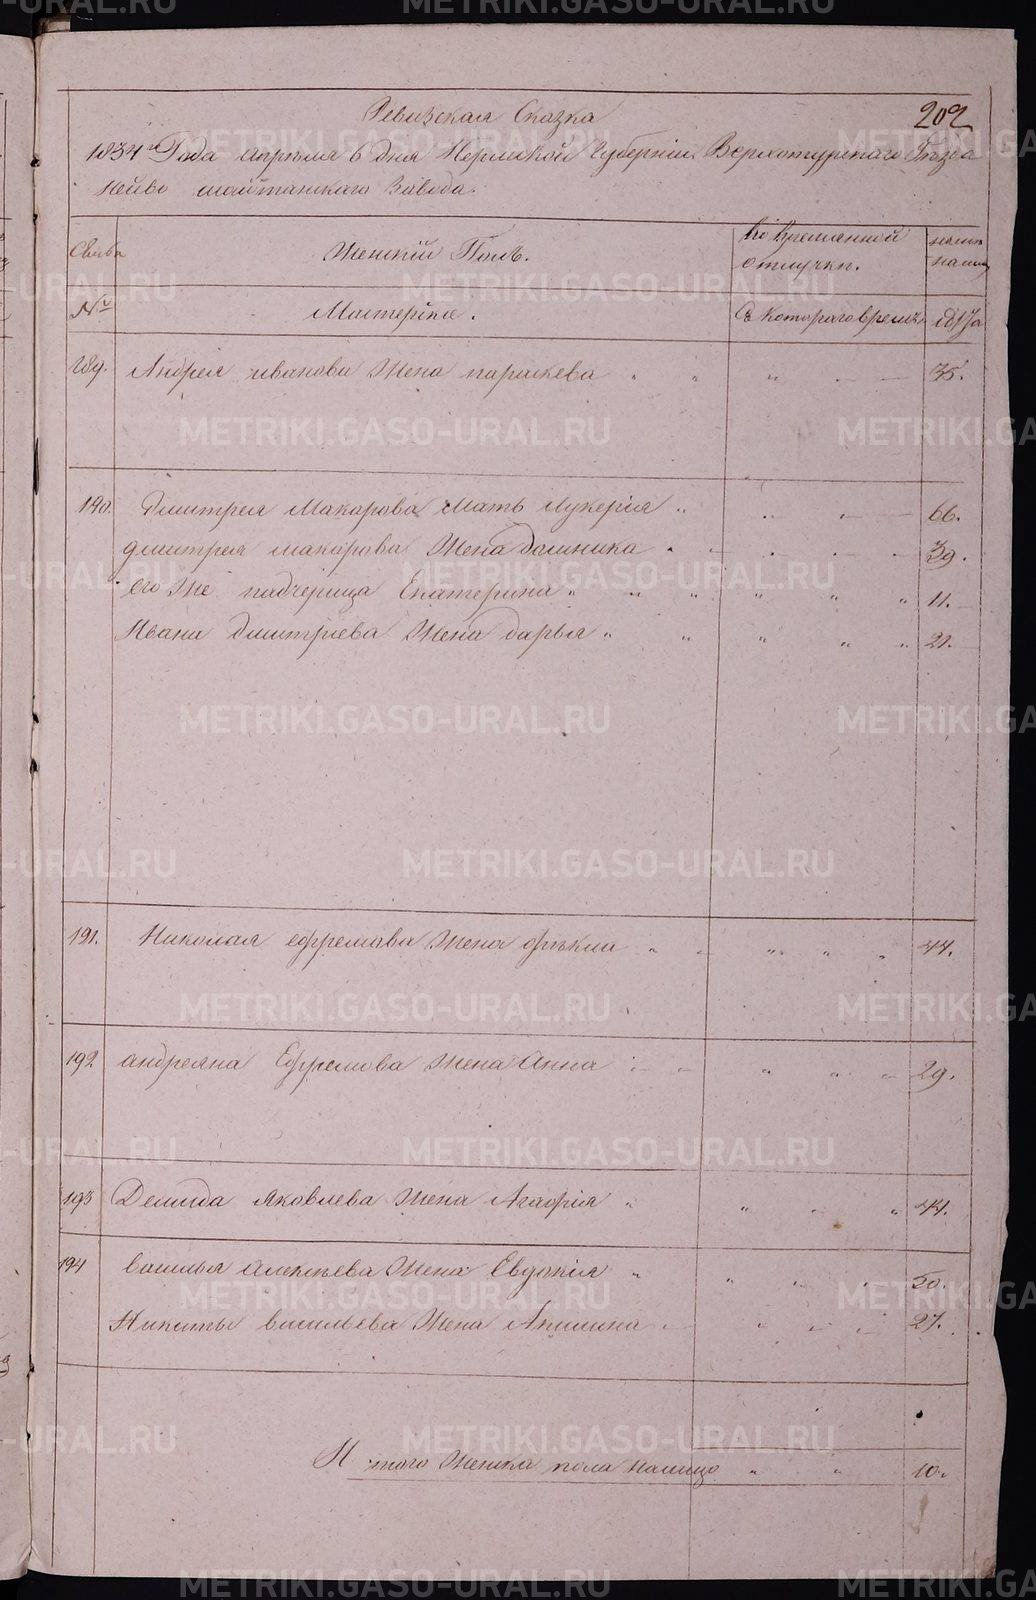 202
Ревизская Сказка
1834го Года апреля 6 дня Пермской Губернии Верхотурскаго Уезда
Нейво шайтанскаго Завода.
Семья Женский Полъ. Во временной отлучки. ныне налицо
№ Мастерские. Съ котораго времени лета
189. Андрея иванова Жена парасковья " " " 35.
190. Дмитрея Макарова Мать Лукерия " 66.
дмитрея макарова Жена домника 39.
его же падчерица Екатерина " " " " " " 11.
Ивана Дмитриева Жена дарья " " " " " 21.
191. Николая ефремова Жена фекла " " " " 44.
192 андреяна Ефремова Жена Анна " " " 29.
193 Демида Яковлева Жена Агафия " " " " 44.
194 васильья алексеева Жена Евдокия " " " " 50.
Никиты васильева Жена Акилина " 27.
Итого Женска пола налицо " " 10.
METRIKI.GASO-URAL.RU